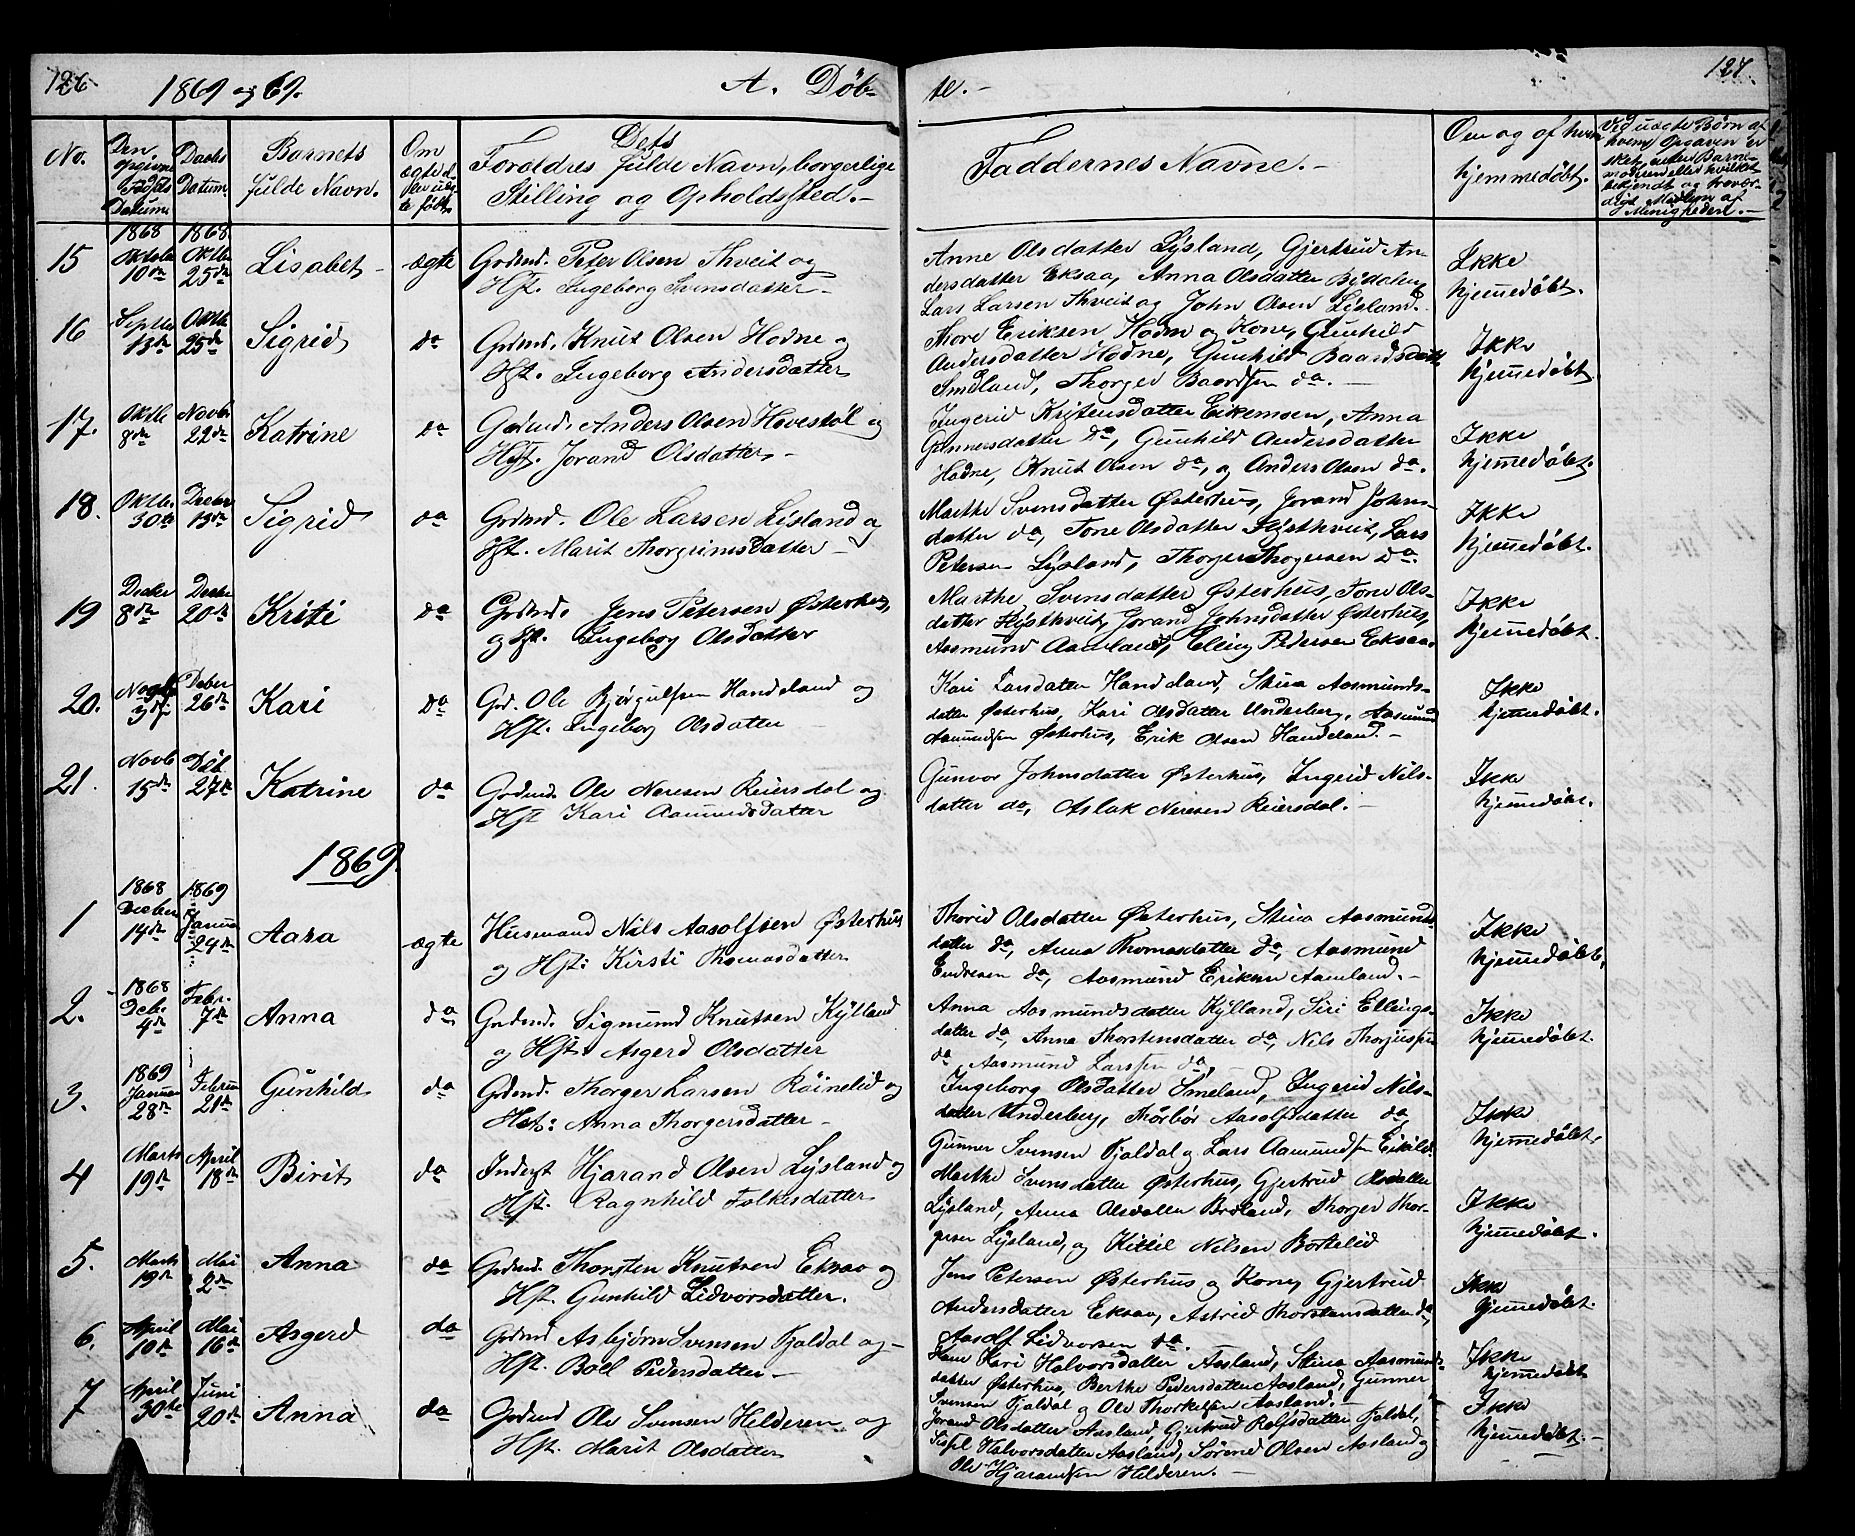 126.
1869 og 69.
A. Døb-
te.-
127
No.
Den opgivne Fødsels Datum
Daabs Datum
Barnets fulde Navn.
Om ægte el. uægte født
Dets Forældres fulde Navn, borgerlige
Stilling og Opholdssted.-
Faddernes Navne.-
Om og af hvem
hjemmedøbt.
Ved uægte Børn af
hvem Opgaven er
sket, enten Barne-
moderen eller hvilket
bekjendt og trovær-
digt Medlem af
Menigheden.-
15
1868 Oktober 10de
1868 Oktbr 25de
Lisabet
ægte
Grdmd. Peter Olsen Thveit og
Hst. Ingeborg Svensdatter-
Anne Olsdatter Lysland, Gjertrud An-
dersdatter Eksaa, Anna Olsdatter
Lars Larsen Thveit og John Olsen Lysland.
Ikke
hjemmedøbt.
16
Septbr 13de
Oktbr 25de
Sigrid
do
Grdmd. Knut Olsen Hodne og
Hst. Ingeborg Andersdatter
Thore Eriksen Hodne og Kone, Gunhild
Andersdatter Hodne, Gunhild Baardsdatt.
Smeland, Thorger Baardsen do.-
Ikke
hjemmedøbt.
17.
Oktbr 8de
Novbr 22de
Katrine
do
Grdmd. Anders Olsen Hovestøl og
Hst. Jorand Olsdatter-
Ingerid Kristensdatter Eikemoen, Anna
Gunnersdatter do, Gunhild Andersdatter
Hodne, Knut Olsen do, og Anders Olsen do.
Ikke
hjemmedøbt.
18.
Oktbr. 30te
Decbr 13de
Sigrid
do
Grdmd. Ole Larsen Lysland og
Hst. Marit Thorgrimsdatter-
Marthe Svensdatter Østerhus, Jorand Johns-
datter do, Tone Olsdatter Hysthveit, Lars
Petersen Lysland, Thorger Thorgersen do.
Ikke
hjemmedøbt.
19
Decbr 8de
Decbr 20de
Kristi
do
Grdmd. Jens Petersen Østerhus,
og Hst. Ingeborg Olsdatter
Marthe Svensdatter Østerhus, Tone Ols-
datter Hysthveit, Jorand Johnsdatter Østerhus,
Aasmund Aamland, Elling Pedersen Eksaa.
Ikke
hjemmedøbt.
20.
Novbr 3die
Decber 26de
Kari
do
Grd. Ole Bjørgulfsen Handeland og
Hst. Ingeborg Olsdatter-
Kari Larsdatter Handeland, Stina Aasmunds-
datter Østerhus, Kari Olsdatter Underberg, Aasmund
Aamundsen Østerhus, Erik Olsen Handeland.-
Ikke
hjemmedøbt.
21.
Novb 15de
Decbr 27de
Katrine
do
Grdmd. Ole Neresen Reiersdal og
Hst Kari Aamundsdatter
Gunvor Johnsdatter Østerhus, Ingerid Nils-
datter do, Aslak Neresen Reiersdal.-
Ikke
hjemmedøbt.
1869.
1
1868 Decber 14de
1869 Januar 24de
Aasa
ægte
Husmand Nils Aasolfsen Østerhus
og Hst: Kirsti Thomasdatter
Thorid Olsdatter Østerhus, Stina Aasmunds-
datter do, Anna Thomasdatter do, Aasmund
Endresen do, Aasmund Eriksen Aamland.-
Ikke
hjemmedøbt.
2.
1868 Decbr. 4de
Febr. 7de
Anna
do
Grdmd. Sigmund Knutsen Kylland
og Hst. Asgerd Olsdatter
Anna Aasmundsdatter Kylland, Siri Ellings-
datter do, Anna Thorstensdatter do, Nils Thorjussen
do Aasmund Larssen do,
Ikke
hjemmedøbt.
3.
1869 Januar 28de
Februar 21de
Gunhild
do
Grdmd. Thorger Larsen Røinelid og
Hst: Anna Thorgersdatter-
Ingeborg Olsdatter Smeland, Ingerid Nils-
datter Underberg, Thorbor Aasolfsdatter do
Gunner Svensen Fjaldal og Lars Aamundsen Eikild.
Ikke
hjemmedøbt.
4
Marts 19de
April 18de
Birit
do
Inderst Hjarand Olsen Lysland og
Hst. Ragnhild Folkesdatter
Marthe Svensdatter Østerhus, Gjertrud Olsdatter
Lysland, Anna Olsdatter Breland, Thorger Thor-
gersen Lysland, og Kittil Nilsen Bortelid
Ikke
hjemmedøbt.
5.
Marts 19de
Mai 2de
Anna
do
Grdmd. Thorsten Knutsen Eksaa og
Hst. Gunhild Lidvorsdatter.
Jens Petersen Østerhus og Kone, Gjertrud
Andersdatter Eksaa, Astrid Thorstensdatter do,
Aasolf Lidvorsen do.
Ikke
hjemmedøbt.
6.
April 10de
Mai 16de
Asgerd
do
Grdmd Asbjørn Svensen Fjaldal og-
Hst. Boel Pedersdatter-
Kari Halvorsdatter Aasland, Stina Aasmunds-
datter Østerhus, Berthe Pedersdatter Aasland, Gunner
Svensen Fjaldal og Ole Thorkelsen Aasland.-
Ikke
hjemmedøbt
7
April 30te
Juni 20de
Anna
do
Grdmd Ole Svensen Helderen og
Hst. Marit Olsdatter
Jorand Olsdatter Aasland, Gjertrud Rolfsdatter Fjaldal,
Sissel Halvorsdatter Aasland, Sørene Olsen Aasland og
Ole Hjarandsen Helderen.-
Ikke
hjemmedøbt.-